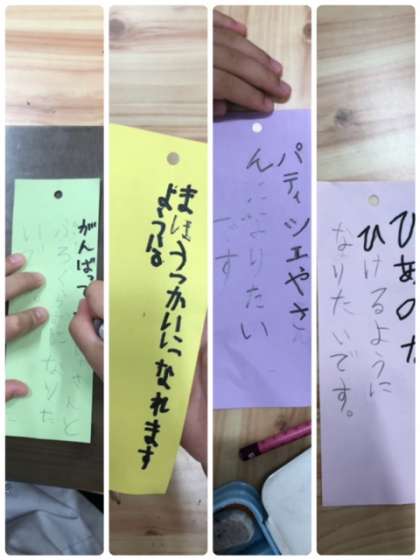 がんばって
さんと
なりた
いで
まほうつかいになれます
ように
パティツエやさ
んになりたい
です
ぴあの
ひけるように
なりたいです。